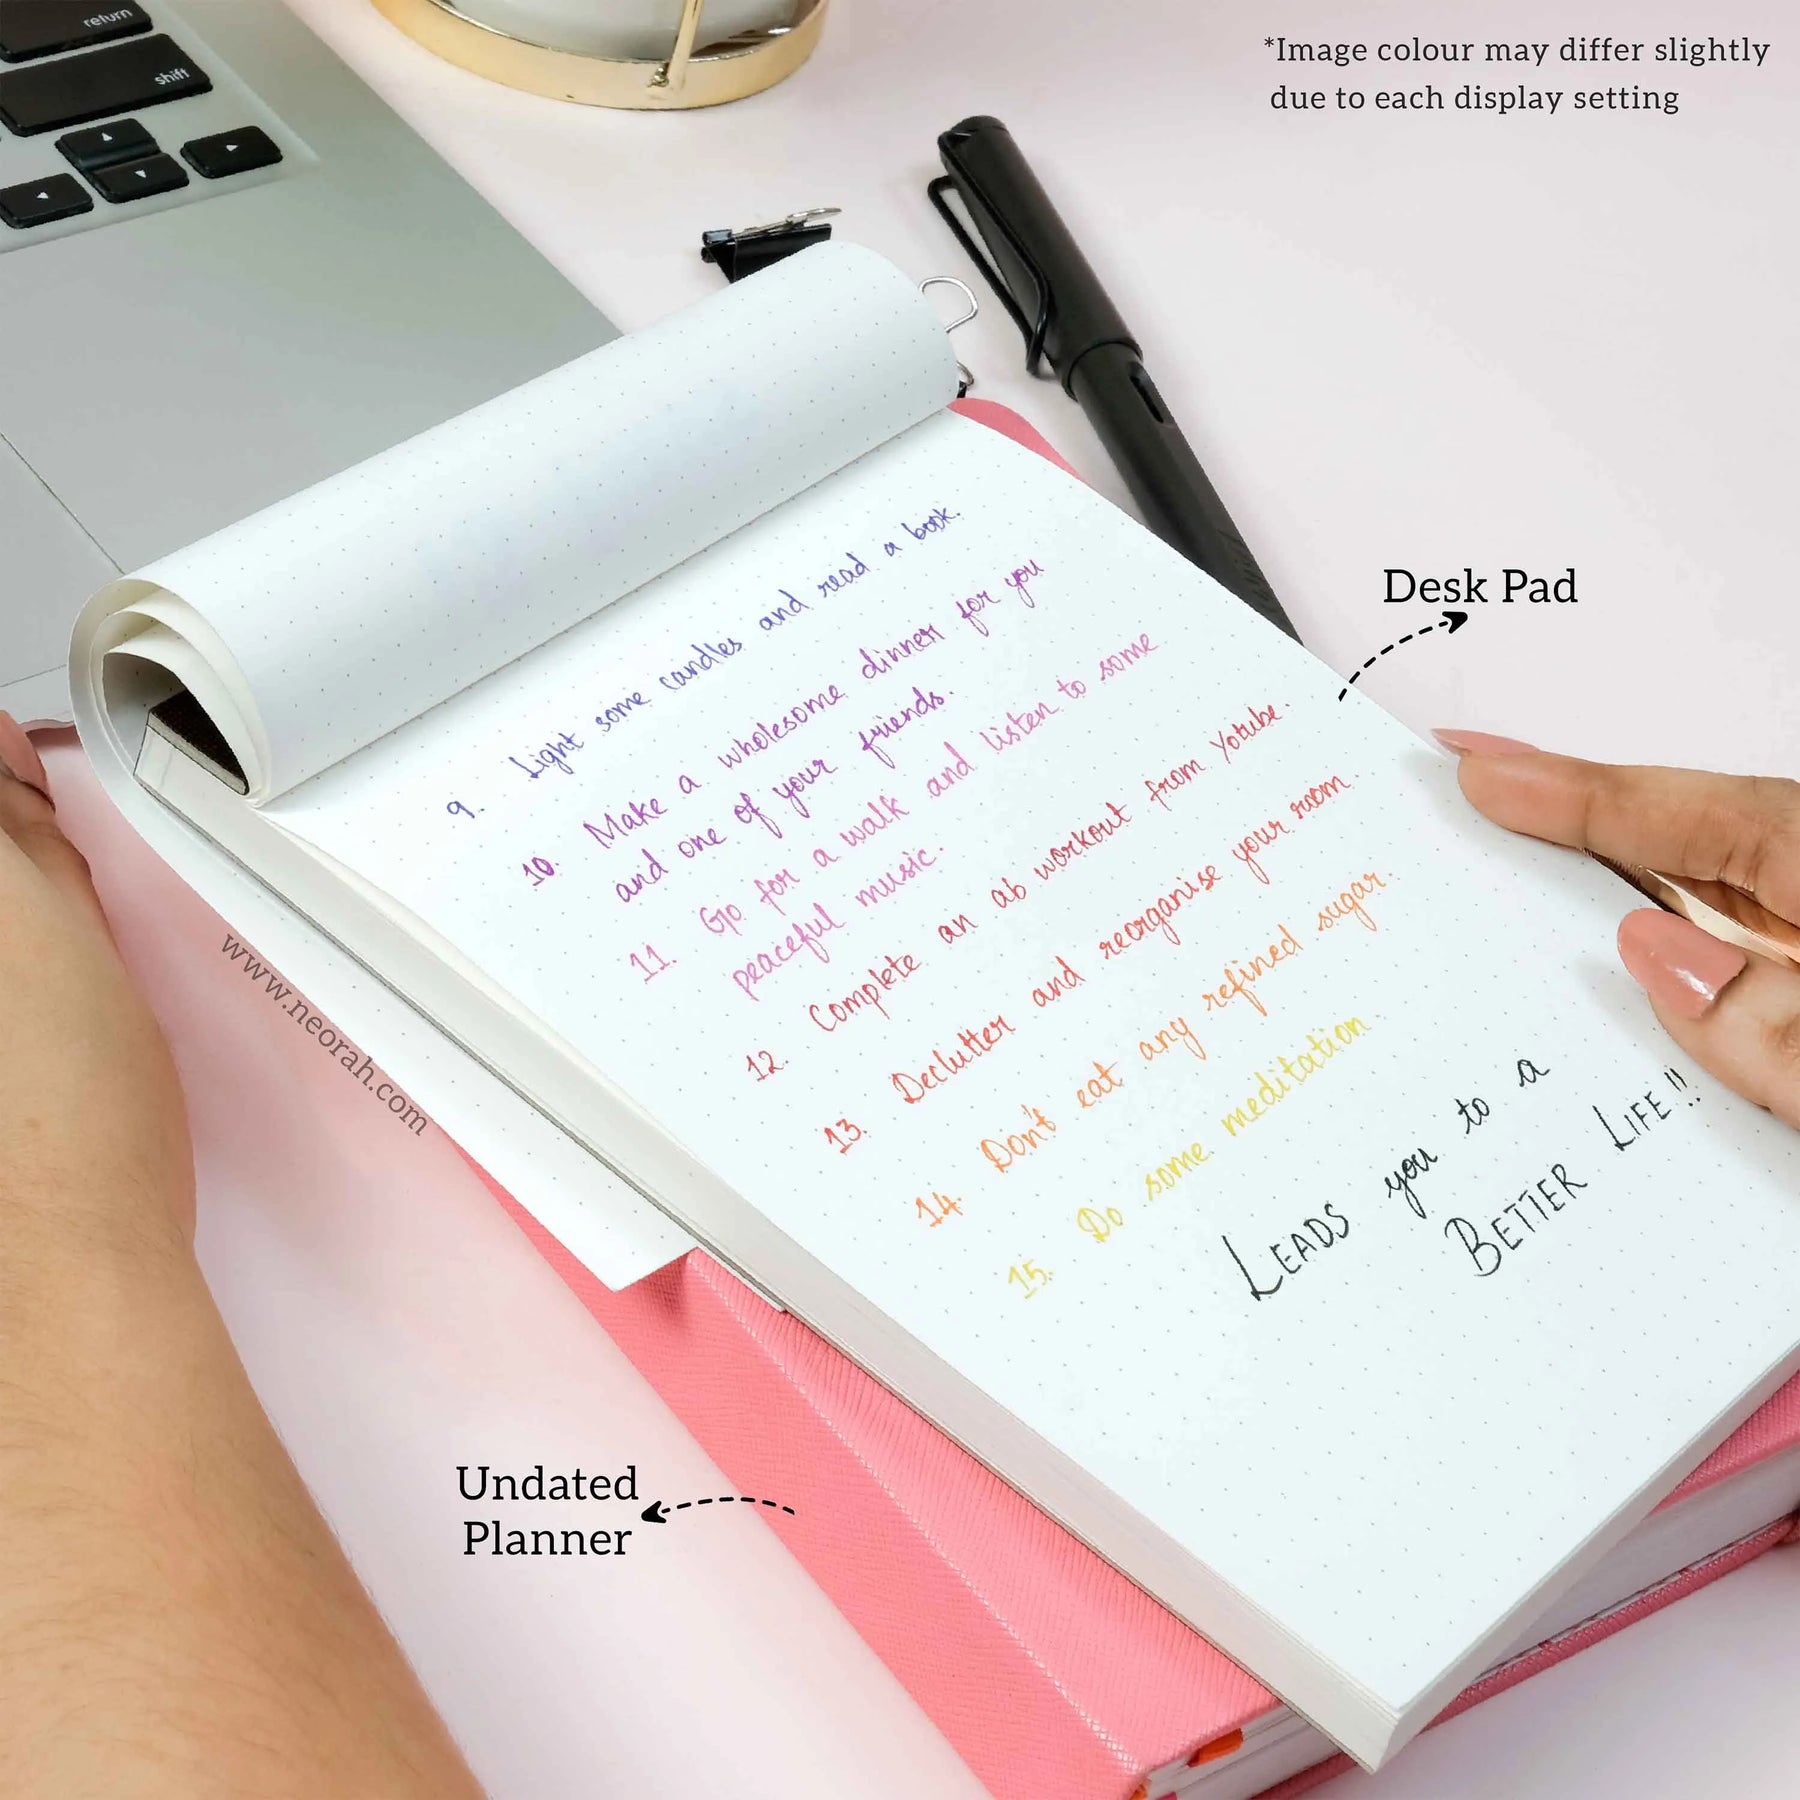 return
shift
*Image colour may differ slightly
due to each display setting
Desk Pad
9. Light some candles and read a book.
10. Make a wholesome dinner for you
and one of your friends.
11. Go for a walk and listen to some
peaceful music.
12. Complete an ab workout from Yotube.
13. Declutter and reorganise your room
14. Don't eat any refined sugar.
15. Do some meditation.
LEADS you to a
BETTER LIFE!!
www.neorah.com
Undated
Planner